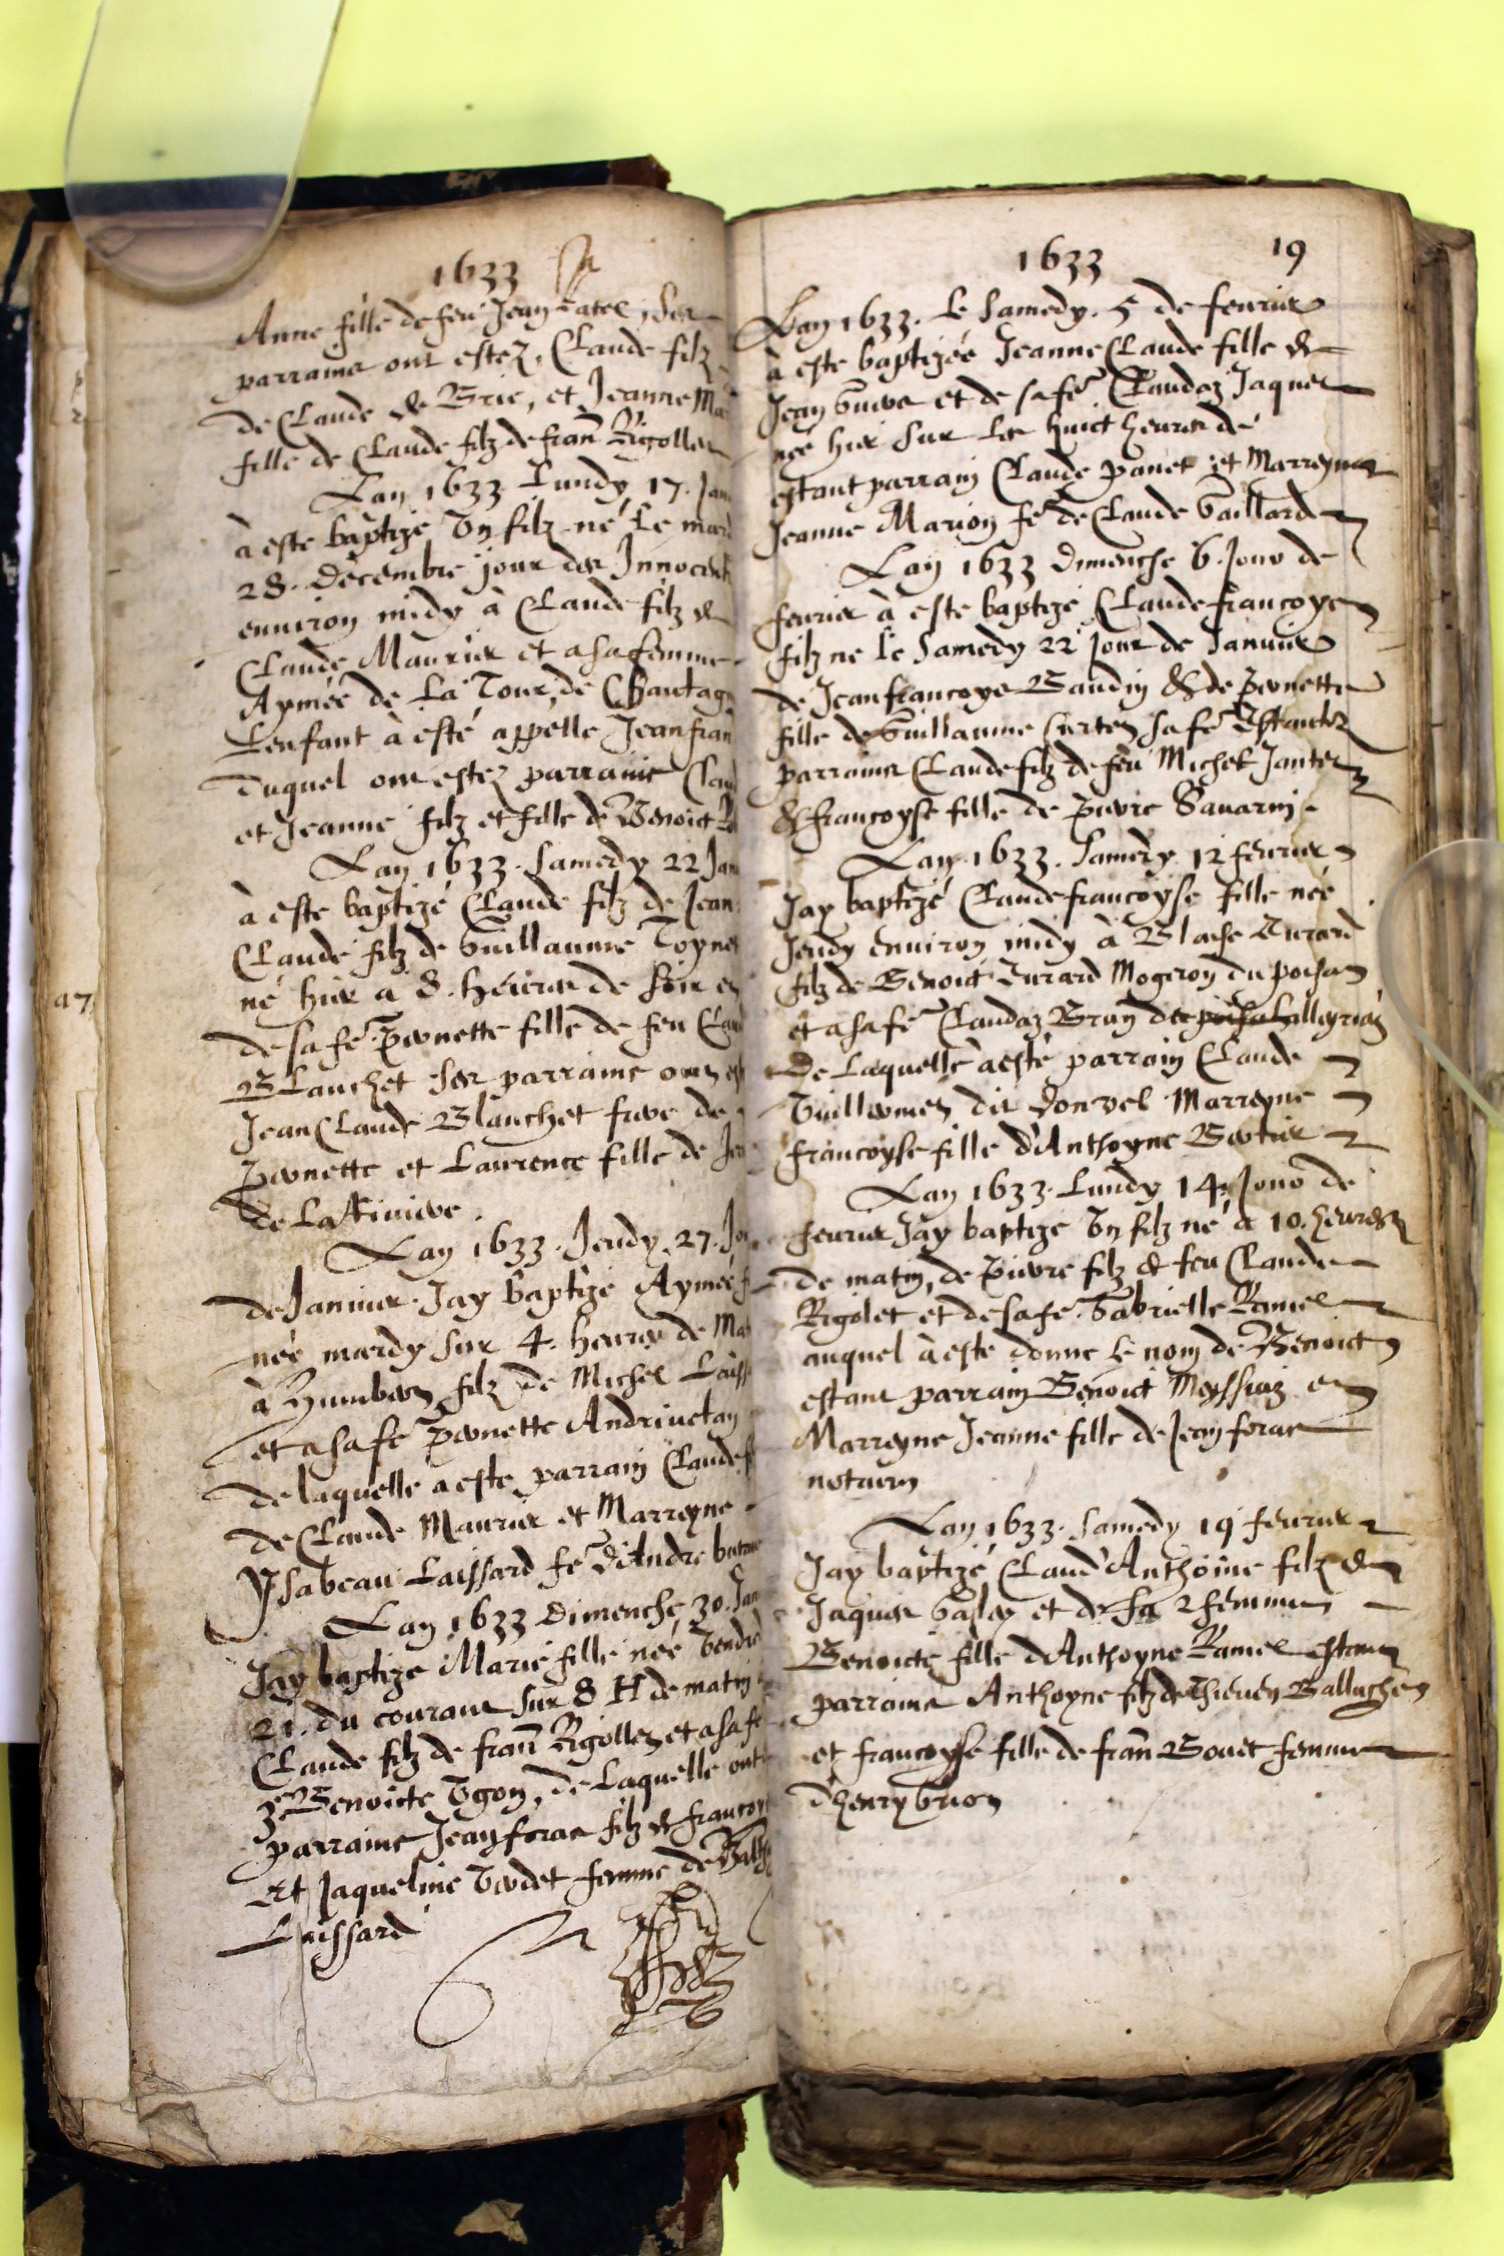 1633
Anne fille de feu Jean
parrains ont estez, Claude filz
de Claude de Brie, et Jeanne Ma
fille de Claude filz de Fran Rigollet
Lan 1633 Lundy 17. Jan
à este baptizé Un filz né Le mar
28. decembre jour des Innocents
enuiron midy à Claude filz de
Claude Maurier et a sa femme
Aymée de La Tour, de Chautag
Lenfant à esté appelle Jeanfran
duquel ont estez parrains Clau
et Jeanne filz et fille de Benoict
Lan 1633. Samedy 22 Jan
à este baptizé Claude filz de Jean
Claude filz de Guillaume Toyne
né hier a 8. heures de soir et
de sa fe Pernette fille de feu Clau
Blanchet Ses parrains ont est
Jean Claude Blanchet frere de
Pernette et Laurence fille de Jea
de La Riuiere.
Lan 1633. Jeudy 27. Jou
de Januier. Jay baptizé Aymée f
née mardy sur 4. heures de Mat
à Humbert filz de Michel Laiss
et a sa fe Pernette Andriuetan
de laquelle a este parrain Claude f
de Claude Maurier et Marreyne
Ysabeau Laissard fe d'Andre
Lan 1633 Dimenche 30. Jan
Jay baptize Marie fille née Vendre
21. du courant sur 8 H de matin
Claude filz de Fran Rigollet et a sa fe
3e Benoicte Ugon, de Laquelle ont
parrains Jean forae filz de Francoy
et Jaqueline Verdet femme de Balth
Laissard
47
1633
19
Lan 1633. Le Samedy. 5 de feurier
à este baptizée Jeanne Claude fille de
Jean et de sa fe Claudaz Jaquet
née hier sur Les huict heures de
estant parrain Claude Panet et Marreyne
Jeanne Marion fe de Claude Gaillard
Lan 1633 Dimenche 6. Jour de
feurier à este baptizé Claude francoys
filz né Le Samedy 22 jour de Januier
de Jean francoys Baudin & de Pernette
fille de Guillaume Curtet sa fe Estants
parrains Claude filz de feu Michel Jantet
& francoyse fille de Pierre Sauarin
Lan 1633. Samedy 12 feurier
Jay baptizé Claude francoyse fille née
Jeudy enuiron midy à Blaise Turard
filz de Benoict Turard Mogeron du poisat
et a sa fe Claudaz Brun de
De Laquelle à esté parrain Claude
Guillermet dit Marreyne
francoyse fille d'Anthoyne Bertier
Lan 1633. Lundy 14. Jour de
feurier Jay baptizé Un filz né a 10. heures
de matin, de Pierre filz de feu Claude
Rigolet et de sa fe. Gabrielle Ramel
auquel à este donné Le nom de Benoict
estant parrain Benoict Meyssiaz et
Marreyne Jeanne fille de Jean forae
notaire
Lan 1633. Samedy 19 feurier
Jay baptizé Claud' Anthoine filz de
Jaques et de sa 2 femme
Benoicte fille d'Anthoyne Ramel estant
parrains Anthoyne filz de Thieuen Balluche
et francoyse fille de Fran Bouet femme
d'henry brion